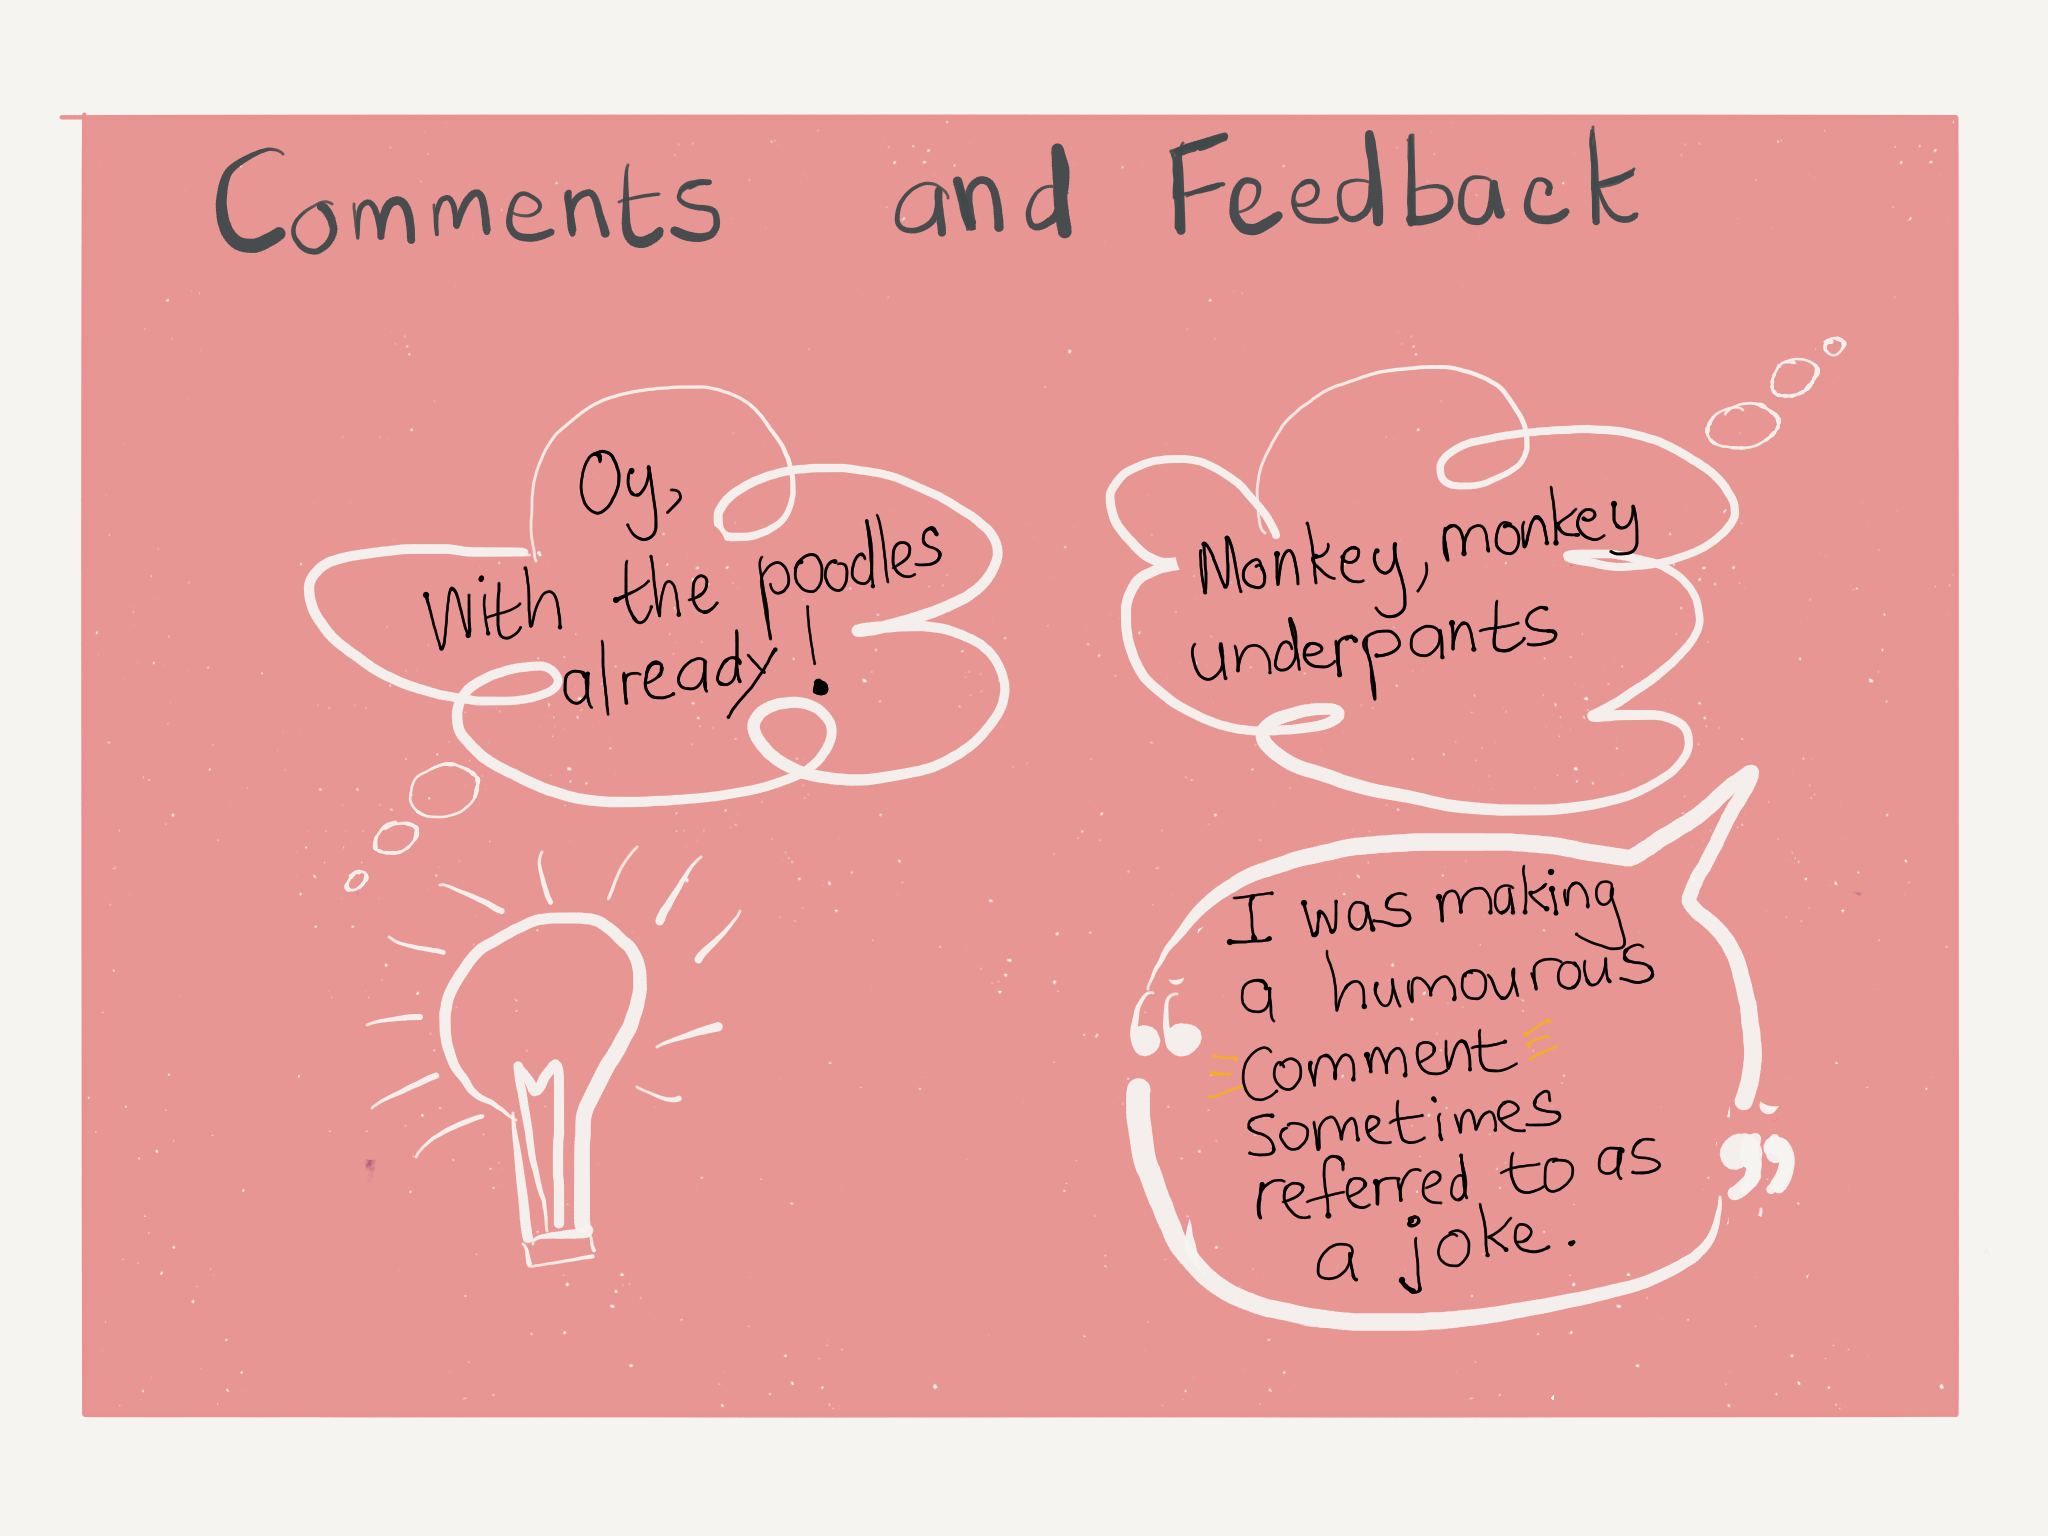 Comments and Feedback
Oy,
with the poodles
already!
Monkey, monkey
underpants
I was making
a humourous
Comment
sometimes
referred to as
a joke.